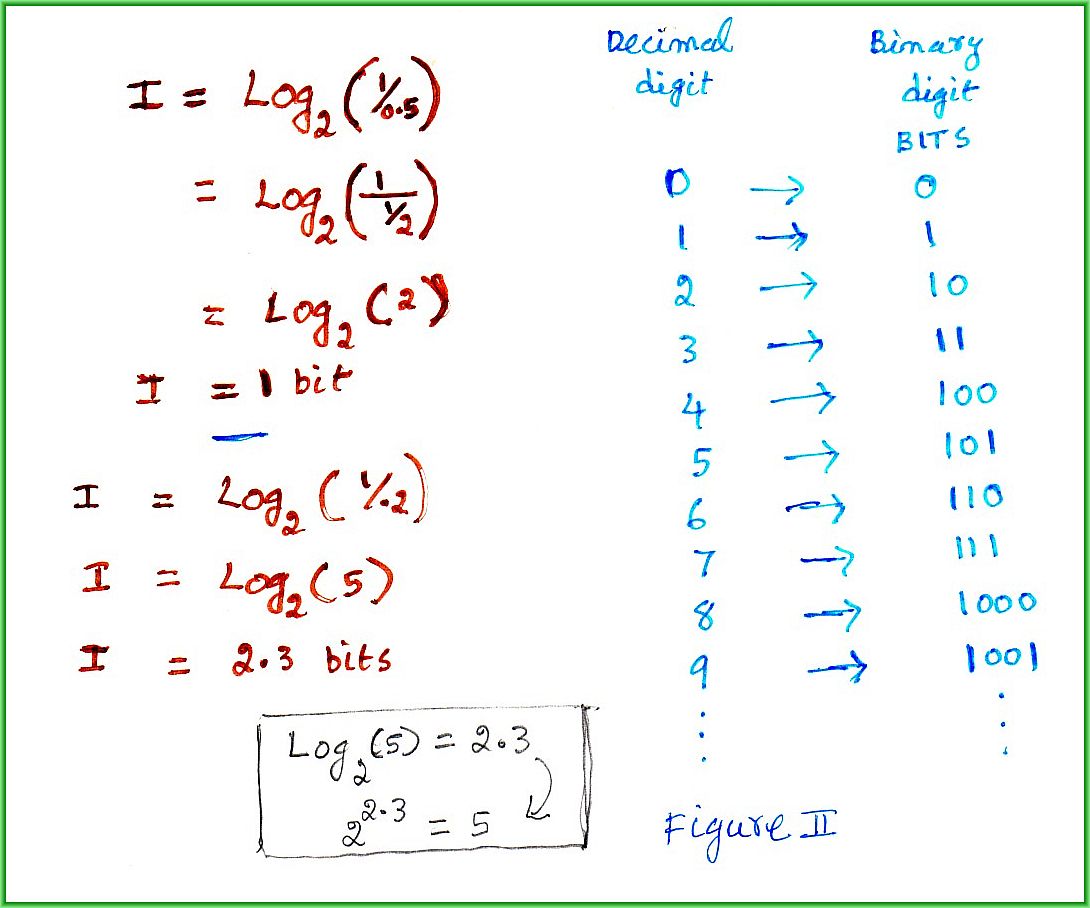 I = Log₂(1/0.5)
= Log₂(1/½)
= Log₂(2)
I = 1 bit
I = Log₂(1/.2)
I = Log₂(5)
I = 2.3 bits
Log₂(5) = 2.3
2^2.3 = 5
Decimal digit
Binary digit
BITS
0 → 0
1 → 1
2 → 10
3 → 11
4 → 100
5 → 101
6 → 110
7 → 111
8 → 1000
9 → 1001
Figure II